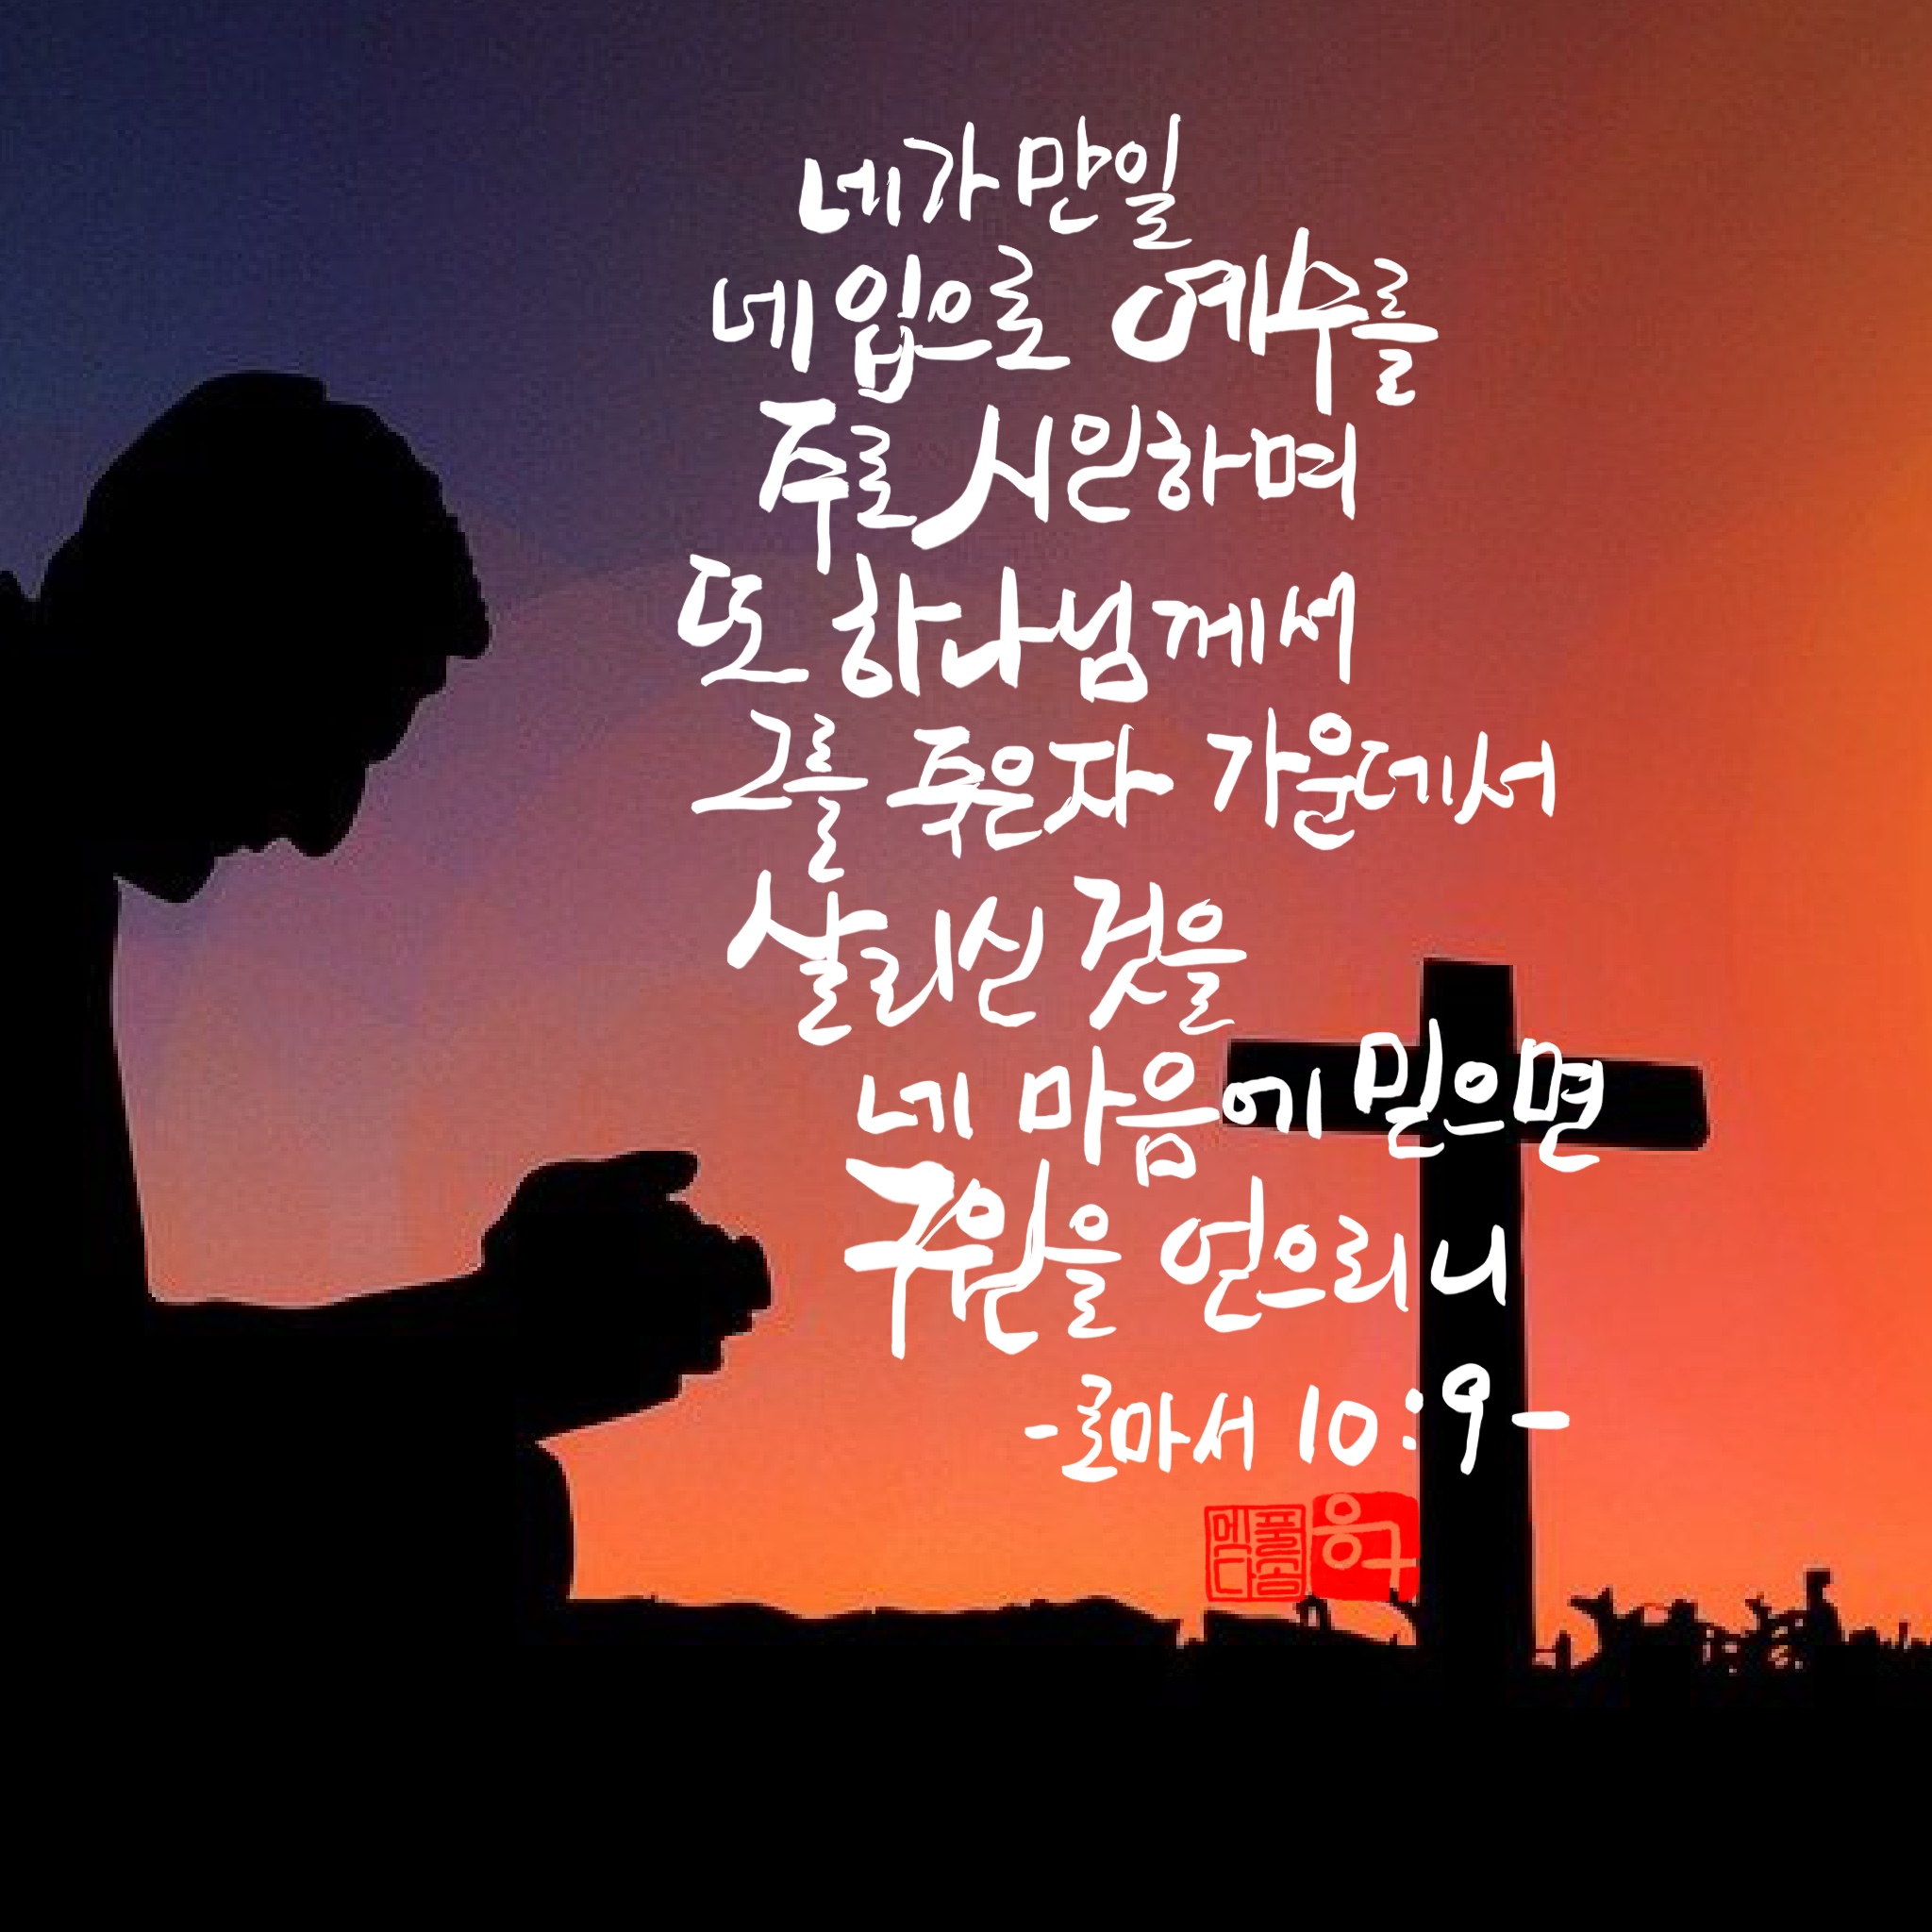 네가 만일
네 입으로 예수를
주로 시인하며
또 하나님께서
그를 죽은자 가운데서
살리신 것을
네 마음에 믿으면
구원을 얻으리니
-로마서 10:9-